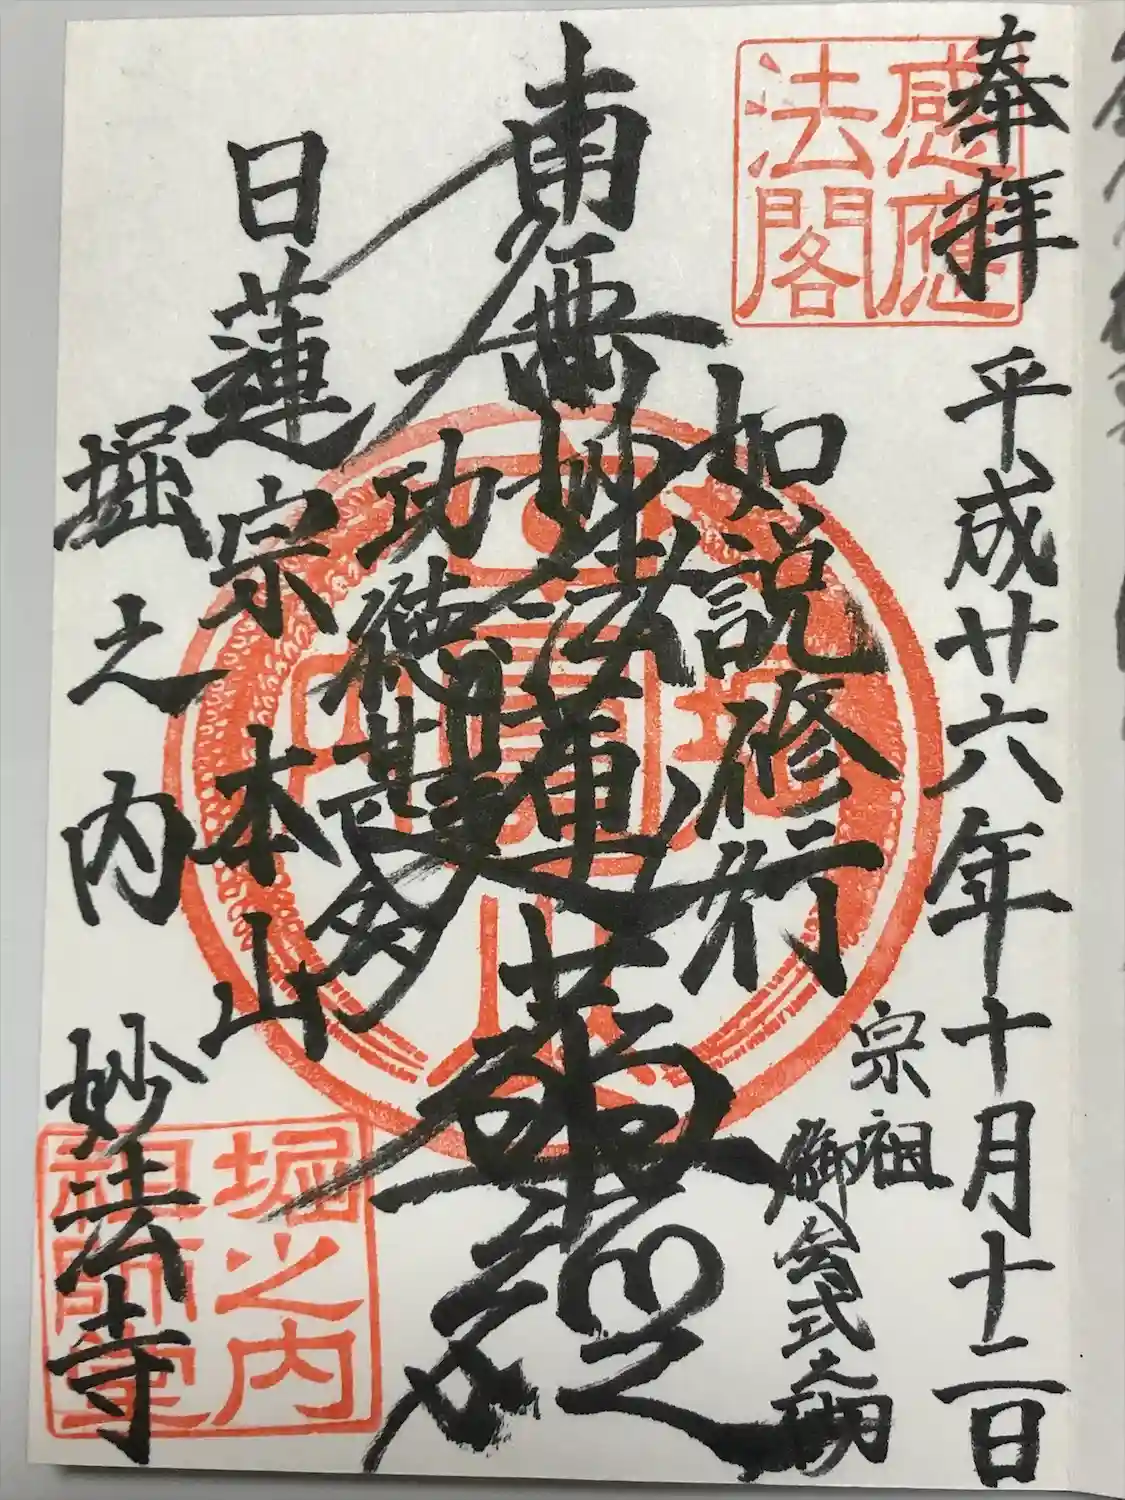 奉拝
平成廿六年十月十二日
感應
法閣
宗祖
御会式之砌
如説修行
南無妙法蓮華経
功徳甚多
日蓮宗本山
堀之内
妙法寺
堀之内
祖師堂